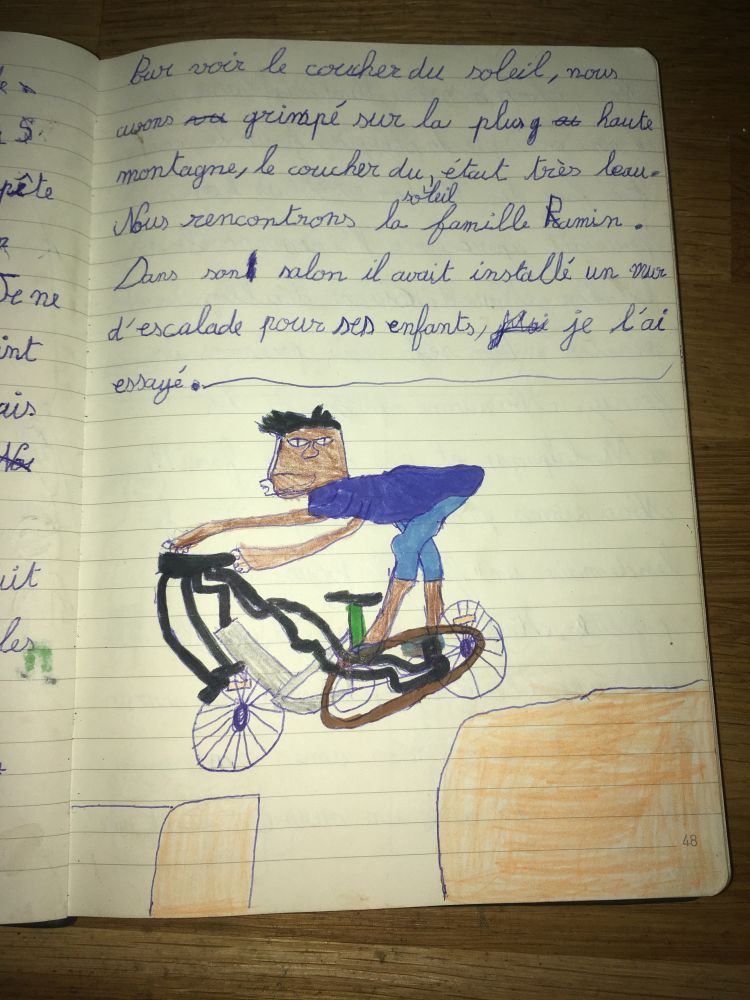 Pur voir le coucher du soleil, nous
avons grimpé sur la plus haute
montagne, le coucher du soleil était très beau.
Nous rencontrons la famille Ramin.
Dans son salon il avait installé un mur
d'escalade pour ses enfants, je l'ai
essayé.
48
pête
Je ne
int
ais
uit
les